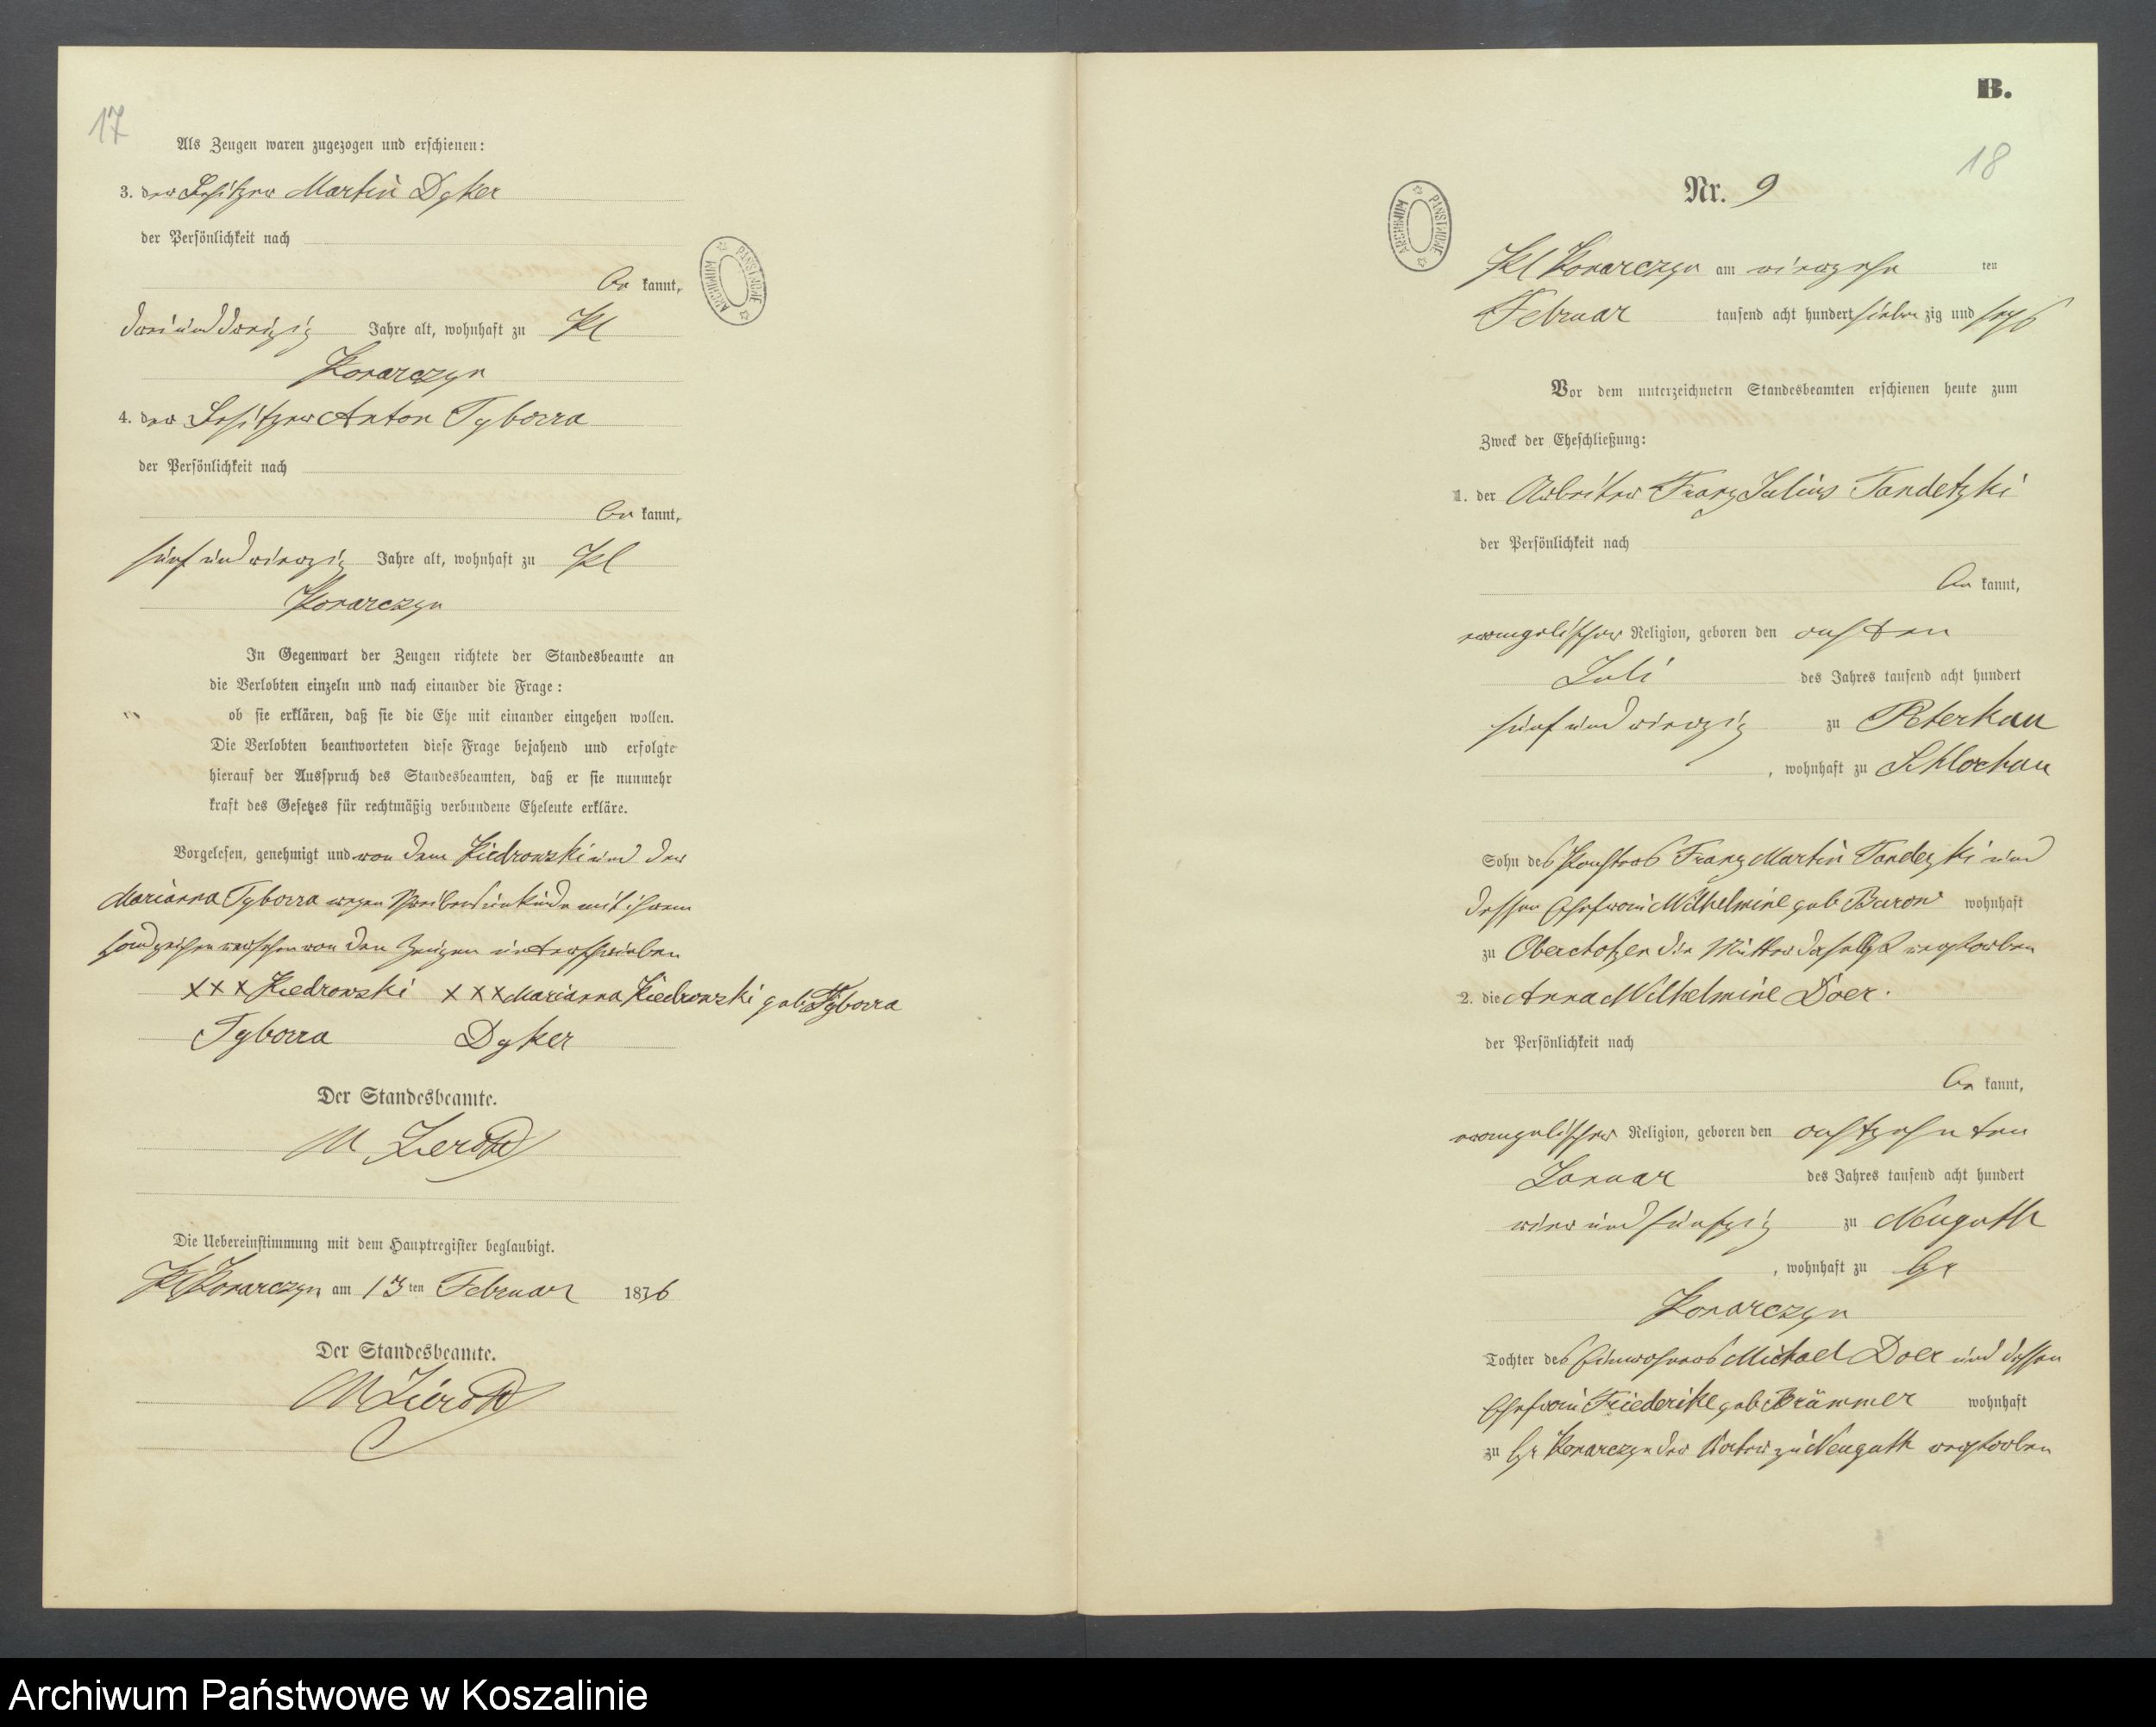 17
Als Zeugen waren zugezogen und erschienen:
3. der Besitzer Martin Dyker
der Persönlichkeit nach
be kannt,
dreiunddreißig Jahre alt, wohnhaft zu Kl
Konarczyn
4. der Besitzer Anton Tyborra
der Persönlichkeit nach
be kannt,
fünfundvierzig Jahre alt, wohnhaft zu Kl
Konarczyn
In Gegenwart der Zeugen richtete der Standesbeamte an
die Verlobten einzeln und nach einander die Frage:
ob sie erklären, daß sie die Ehe mit einander eingehen wollen.
Die Verlobten beantworteten diese Frage bejahend und erfolgte
hierauf der Ausspruch des Standesbeamten, daß er sie nunmehr
kraft des Gesetzes für rechtmäßig verbundene Eheleute erkläre.
Vorgelesen, genehmigt und von dem Kiedrowski und der
Marianna Tyborra wegen Schreibensunkunde mit ihrem
Handzeichen versehen von den Zeugen unterschrieben
XXX Kiedrowski XXX Marianna Kiedrowski geb Tyborra
Tyborra Dyker
Der Standesbeamte.
M
Die Uebereinstimmung mit dem Hauptregister beglaubigt.
Kl Konarczyn am 13 ten Februar 1876
Der Standesbeamte.
M
ARCHIWUM PAŃSTWOWE
B.
18
Nr. 9
ARCHIWUM PAŃSTWOWE
Kl Konarczyn am vierzehn ten
Februar tausend acht hundert sieben zig und sechs
Vor dem unterzeichneten Standesbeamten erschienen heute zum
Zweck der Eheschließung:
1. der Arbeiter Franz Julius Tandetzki
der Persönlichkeit nach
be kannt,
evangelischer Religion, geboren den achten
Juli des Jahres tausend acht hundert
fünf und vierzig zu Peterkau
, wohnhaft zu Schlochau
Sohn des Franz Martin Tandezki und
dessen Ehefrau Wilhelmine geb Baron wohnhaft
zu die Mutter daselbst verstorben
2. die Anna Wilhelmine Doer.
der Persönlichkeit nach
be kannt,
evangelischer Religion, geboren den achtzehnten
Januar des Jahres tausend acht hundert
vier und fünfzig zu Neuguth
, wohnhaft zu Gr
Konarczyn
Tochter des Einwohners Michael Doer und dessen
Ehefrau Friederike geb Krämmer wohnhaft
zu Gr Konarczyn der Vater zu Neuguth verstorben
Archiwum Państwowe w Koszalinie